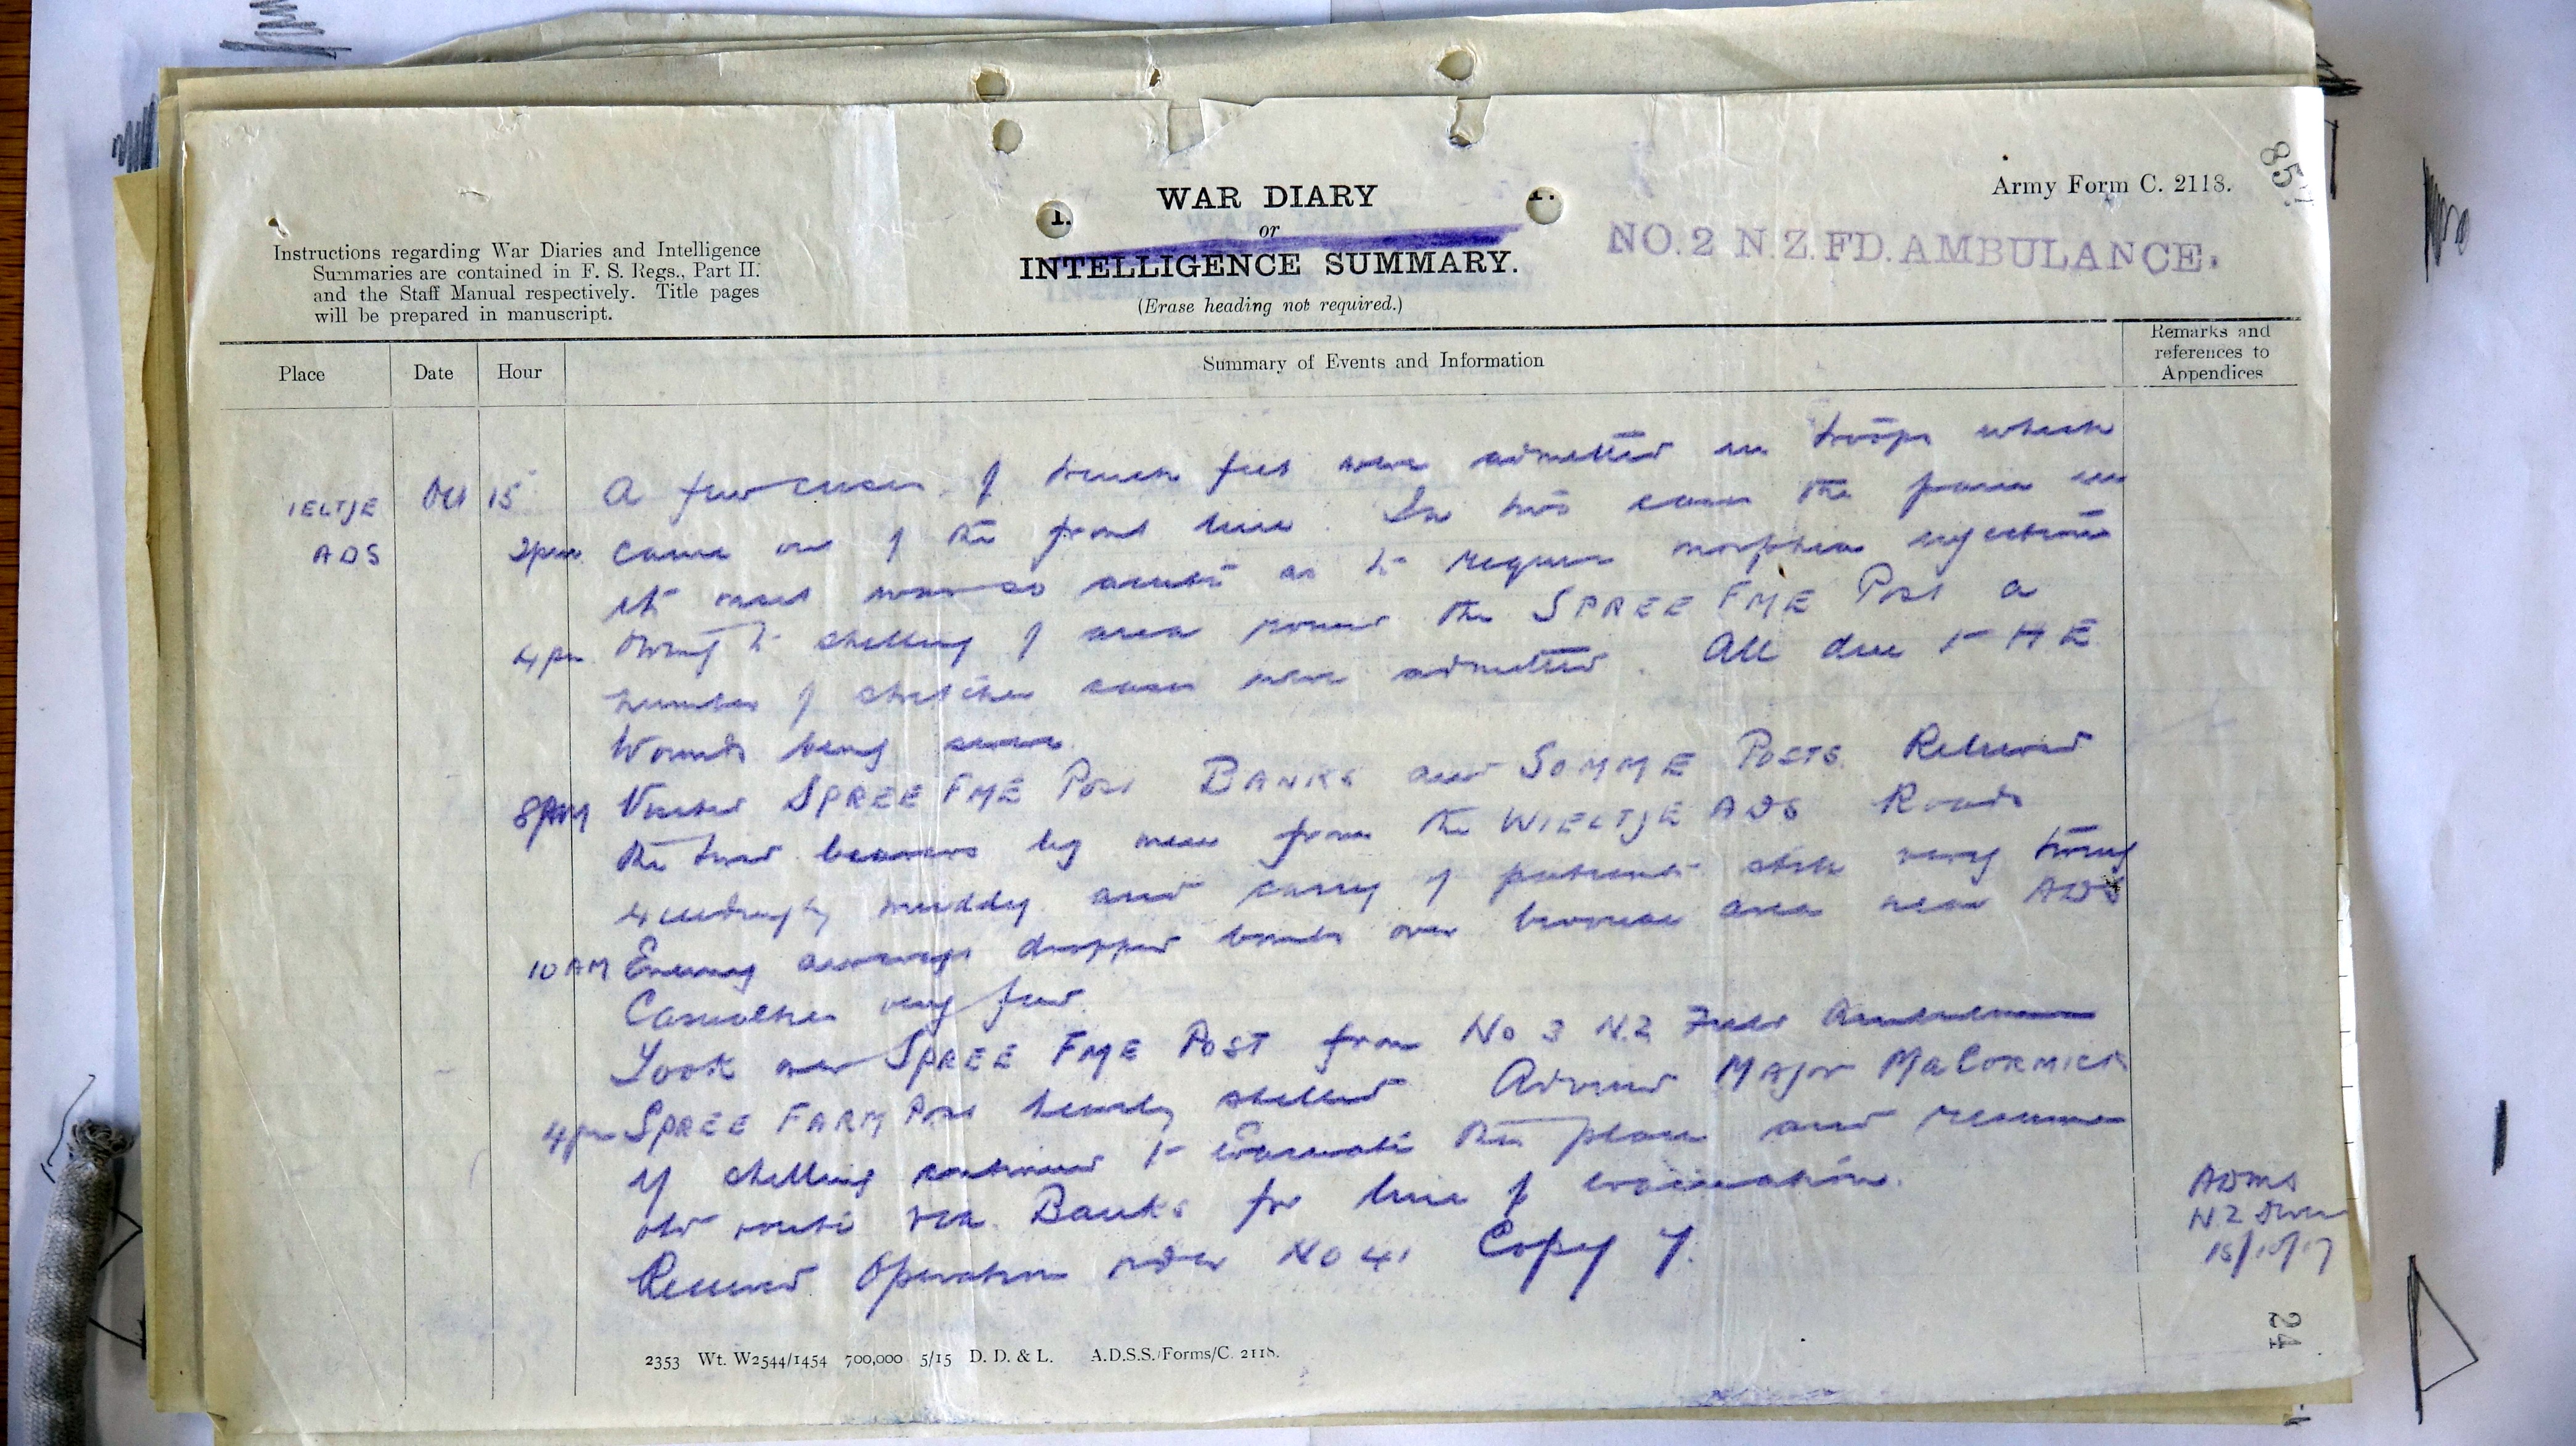 85
Army Form C. 2118.
WAR DIARY
or
INTELLIGENCE SUMMARY.
(Erase heading not required.)
NO. 2 N.Z. FD. AMBULANCE.
Instructions regarding War Diaries and Intelligence
Summaries are contained in F. S. Regs., Part II.
and the Staff Manual respectively. Title pages
will be prepared in manuscript.
Place Date Hour Summary of Events and Information Remarks and references to Appendices
IELTJE Oct 15 A few cases of trench feet were admitted in troops which
ADS 2pm came out of the front line. In two cases the pain in
feet was so acute as to require morphia injections
4pm Owing to shelling of area round the SPREE FME Post a
number of stretcher cases were admitted. All due to HE
Wounds being severe.
8PM Visited SPREE FME Post BANKS and SOMME POSTS. Relieved
the tired bearers by men from the WIELTJE ADS Roads
exceedingly muddy and carry of patients still very trying
10AM Enemy dropped bombs over bivouac area near ADS
Casualties very few.
Took over SPREE FME POST from No 3 N.Z Field Ambulance
4pm SPREE FARM Post heavily shelled. Advised Major MaCORMICK
if shelling continued to evacuate the place and resume
old route via Banks for line of evacuation.
Received Operation order No 41 Copy 7.
ADMS
N.Z Divn
15/10/17
2353 Wt. W2544/1454 700,000 5/15 D. D. & L. A.D.S.S./Forms/C. 2118.
24